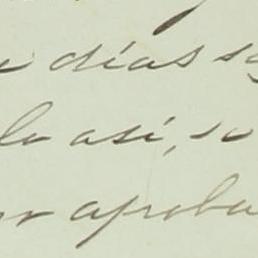 e días s
lo así, se
or aproba